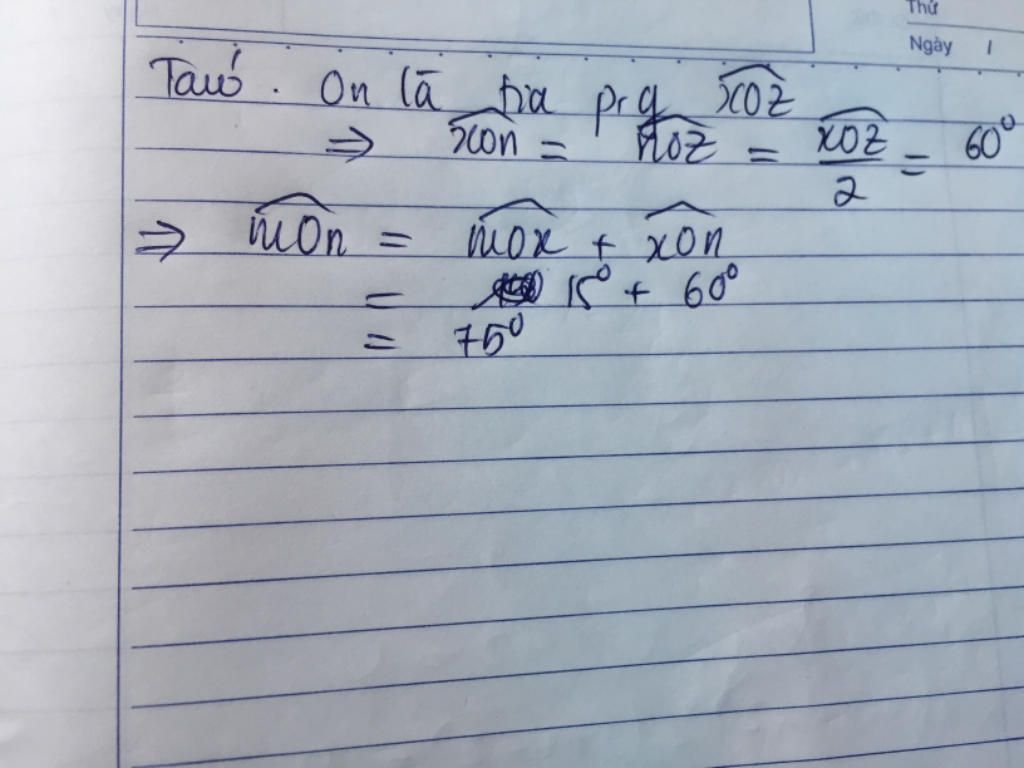 Thứ
Ngày /
Ta có. On là tia prg \widehat{xOz}
⇒ \widehat{xOn} = \widehat{nOz} = \frac{\widehat{xOz}}{2} = 60°
⇒ \widehat{mOn} = \widehat{mOx} + \widehat{xOn}
= 15° + 60°
= 75°